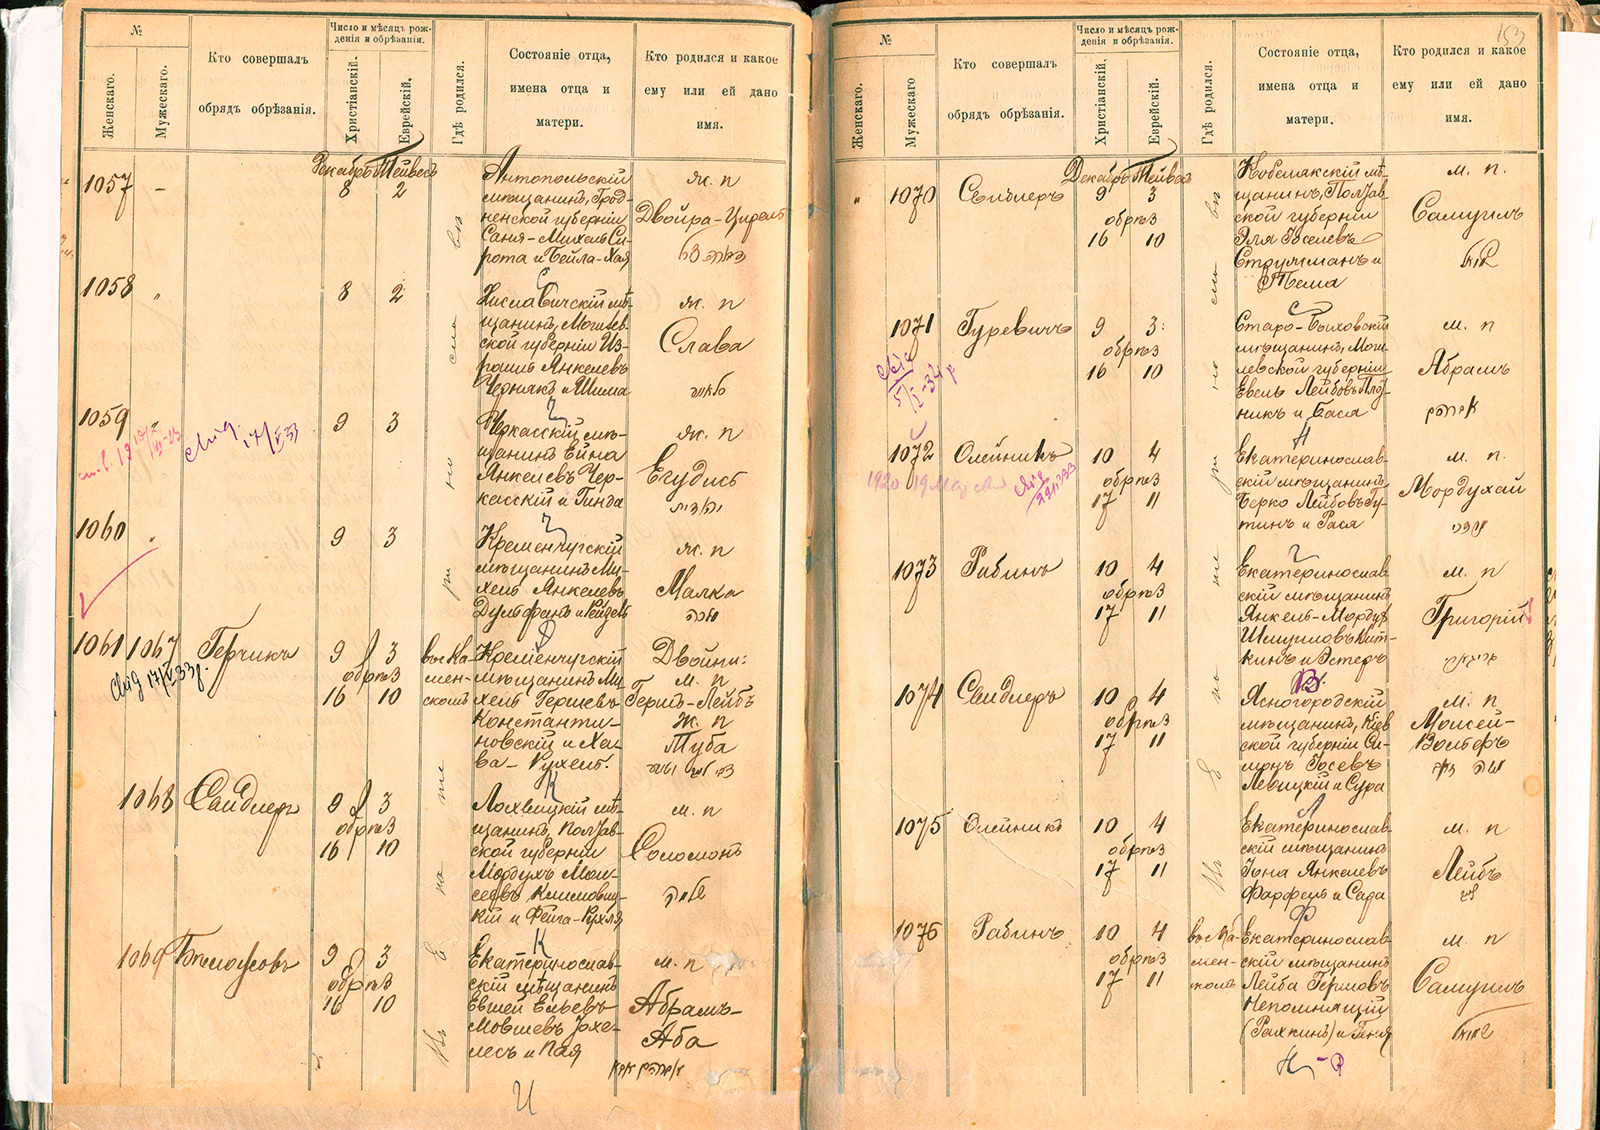 №
Женскаго.
Мужескаго.
Кто совершалъ
обрядъ обрѣзанія.
Число и мѣсяцъ рож-
денія и обрѣзанія.
Христіанскій.
Еврейскій.
Гдѣ родился.
Состояніе отца,
имена отца и
матери.
Кто родился и какое
ему или ей дано
имя.
Декабрь Тейвесъ
1057 – 8 2
Антопольскій
мѣщанинъ, Грод-
ненской губерніи
Саня-Михель Си-
рота и Бейла-Хая
ж. п
Двойра-Цирель
1058 " 8 2
щанинъ, Могилев-
ской губерніи Из-
раиль Янкелевъ
Чернякъ и Шима
ж. п
Слава
1059 9 3
Черкасскій мѣ-
щанинъ Ейна
Янкелевъ Чер-
касскій и Гинда
ж. п
Егудисъ
יהודית
17/V 33
1060 9 3
Кременчугскій
мѣщанинъ Ми-
хель Янкелевъ
ж. п
Малка
1061 1067 Герчикъ 9 3
обрѣз
16 10
въ с Ка-
мен-
скомъ
Кременчугскій
мѣщанинъ Ми-
хель Гершевъ
Константи-
новскій и Ха-
ва-Рухель.
Двойни:
м. п
Гершъ-Лейбъ
ж. п
Туба
17/V 33 г.
1068 Свидлеръ 9 3
обрѣз
16 10
Лохвицкій мѣ-
щанинъ, Полтав-
ской губерніи
Мордухъ Мои-
сеевъ Климовиц-
кій и Фейга-Рухля
м. п
Соломонъ
1069 Бѣлоусовъ 9 3
обрѣз
16 10
Екатеринослав-
скій мѣщанинъ
Евшей Ельевъ-
Мовшевъ Іохе-
лесъ и Пая
м. п
Абрамъ-
Аба
И
153
№
Женскаго.
Мужескаго
Кто совершалъ
обрядъ обрѣзанія.
Число и мѣсяцъ рож-
денія и обрѣзанія.
Христіанскій.
Еврейскій.
Гдѣ родился.
Состояніе отца,
имена отца и
матери.
Кто родился и какое
ему или ей дано
имя.
Декабрь Тейвесъ
" 1070 Свидлеръ 9 3
обрѣз
16 10
Кобелякскій мѣ-
щанинъ, Полтав-
ской губерніи
Эля Іоселевъ
Струлманъ и
Тема
м. п.
Самуилъ
1071 Гуревичъ 9 3
обрѣз
16 10
Старо-Быховскій
мѣщанинъ, Моги-
левской губерніи
Евель Лейбовъ
никъ и Бася
м. п
Абрамъ
אברהם
1072 Олейникъ 10 4
обрѣз
17 11
Екатеринослав-
скій мѣщанинъ
Берко Лейбовъ Гу-
тинъ и Рася
м. п.
Мордухай
1073 Рабинъ 10 4
обрѣз
17 11
Екатеринослав-
скій мѣщанинъ
Янкель-Мордух
Шмуиловъ Кит-
кинъ и Эстеръ
м. п
Григорій
1074 Свидлеръ 10 4
обрѣз
17 11
Ясногородскій
мѣщанинъ, Кіев
ской губерніи Си-
монъ Іосевъ
Левицкій и Сура
м. п
Моисей-
Вольфъ
1075 Олейникъ 10 4
обрѣз
17 11
Екатеринослав-
скій мѣщанинъ
Іона Янкелевъ
Фарфель и Сара
м. п
Лейбъ
1076 Рабинъ 10 4
обрѣз
17 11
въ с Ка-
мен-
скомъ
Екатеринослав-
скій мѣщанинъ
Лейба Гершовъ
Непомнящій
(Рахкинъ) и Геня
м. п
Самуилъ